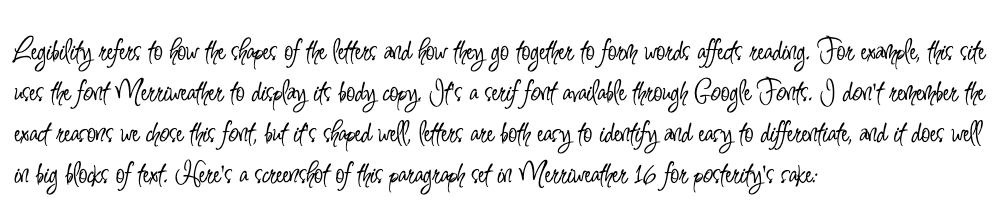 Legibility refers to how the shapes of the letters and how they go together to form words affects reading. For example, this site
uses the font Merriweather to display its body copy. It's a serif font available through Google Fonts. I don't remember the
exact reasons we chose this font, but it's shaped well, letters are both easy to identify and easy to differentiate, and it does well
in big blocks of text. Here's a screenshot of this paragraph set in Merriweather 16 for posterity's sake: